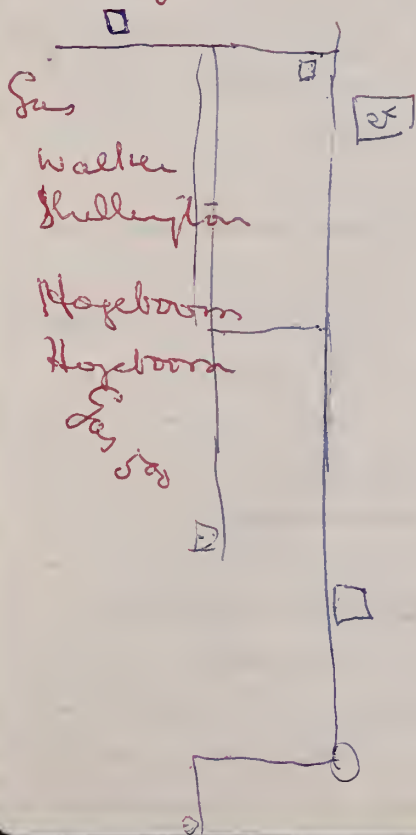 Gas
Walker
Shellington
Hogeboom
Hogeboom
Gas